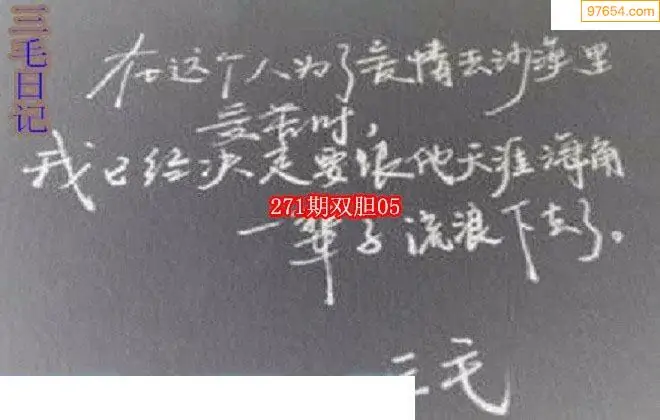 97654.com
三毛日记
在这个人为了爱情去沙漠里
受苦时，
我已经决定要跟他天涯海角
271期双胆05
一辈子流浪下去了。
三毛